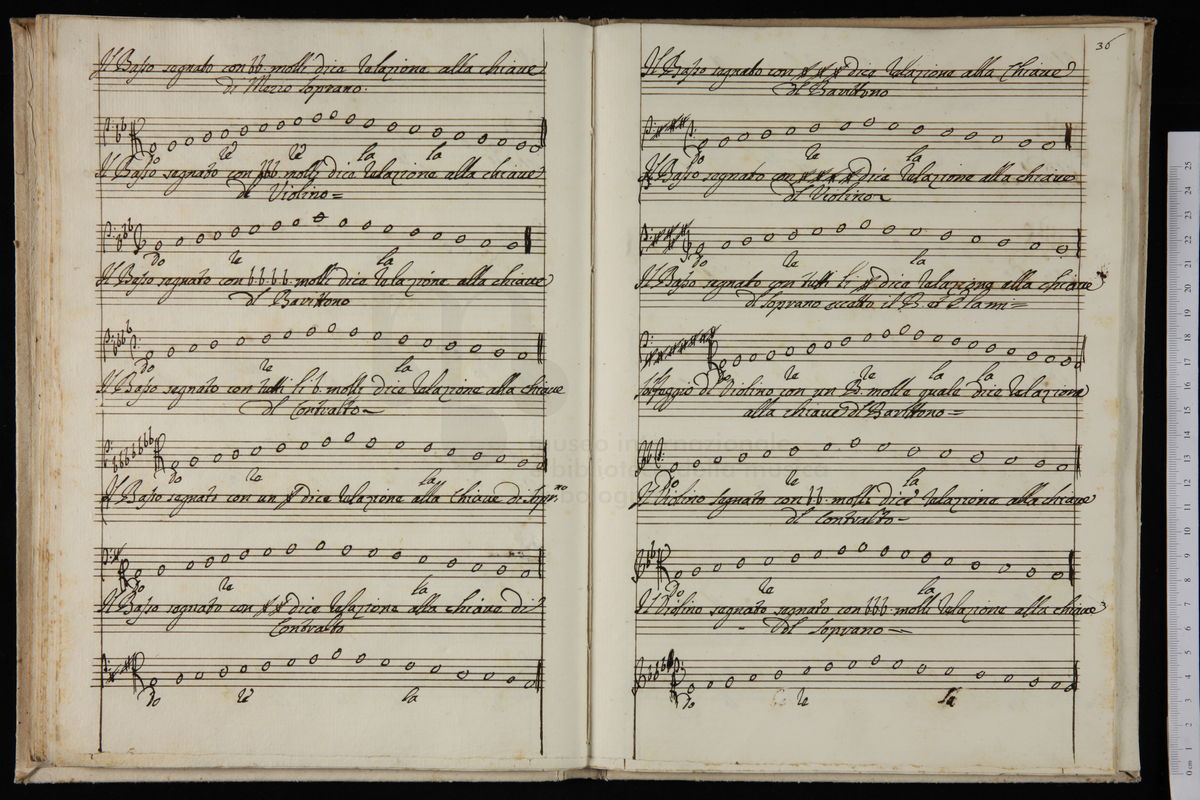 Il Basso segnato con bb. molli dice relazione alla chiave
di Mezzo Soprano.
do re re la la
Il Basso segnato con bbb molli dice relazione alla chiave
di Violino =
do re la
Il Basso segnato con b.b.b.b. molli dice relazione alla chiave
di Barittono
do re la
Il Basso segnato con tutti li b. molli dice relazione alla chiave
di Contralto
do re la
Il Basso segnato con un # dice relazione alla Chiave di Sopr.no
do re la
Il Basso segnato con ## dice relazione alla chiave di
Contralto
do re la
36
Il Basso segnato con ### dice relazione alla Chiave
di Barittono
do re la
Il Basso segnato con #### dice relazione alla chiave
di Violino
do re la
Il Basso segnato con tutti li # dice relazione alla chiave
di Soprano eccetto il B. et Elami =
do re re la la
Solfeggio di Violino con un B. molle quale dice relazione
alla chiave di Barittono =
do re la
Il Violino segnato con bb. molli dice relazione alla chiave
di Contralto
do re la
Il Violino segnato segnato con bbb. molli relazione alla chiave
di Soprano
do re la
museo internazionale
e biblioteca della musica
bologna
25
24
23
22
21
20
19
18
17
16
15
14
13
12
11
10
9
8
7
6
5
4
3
2
1
0 cm